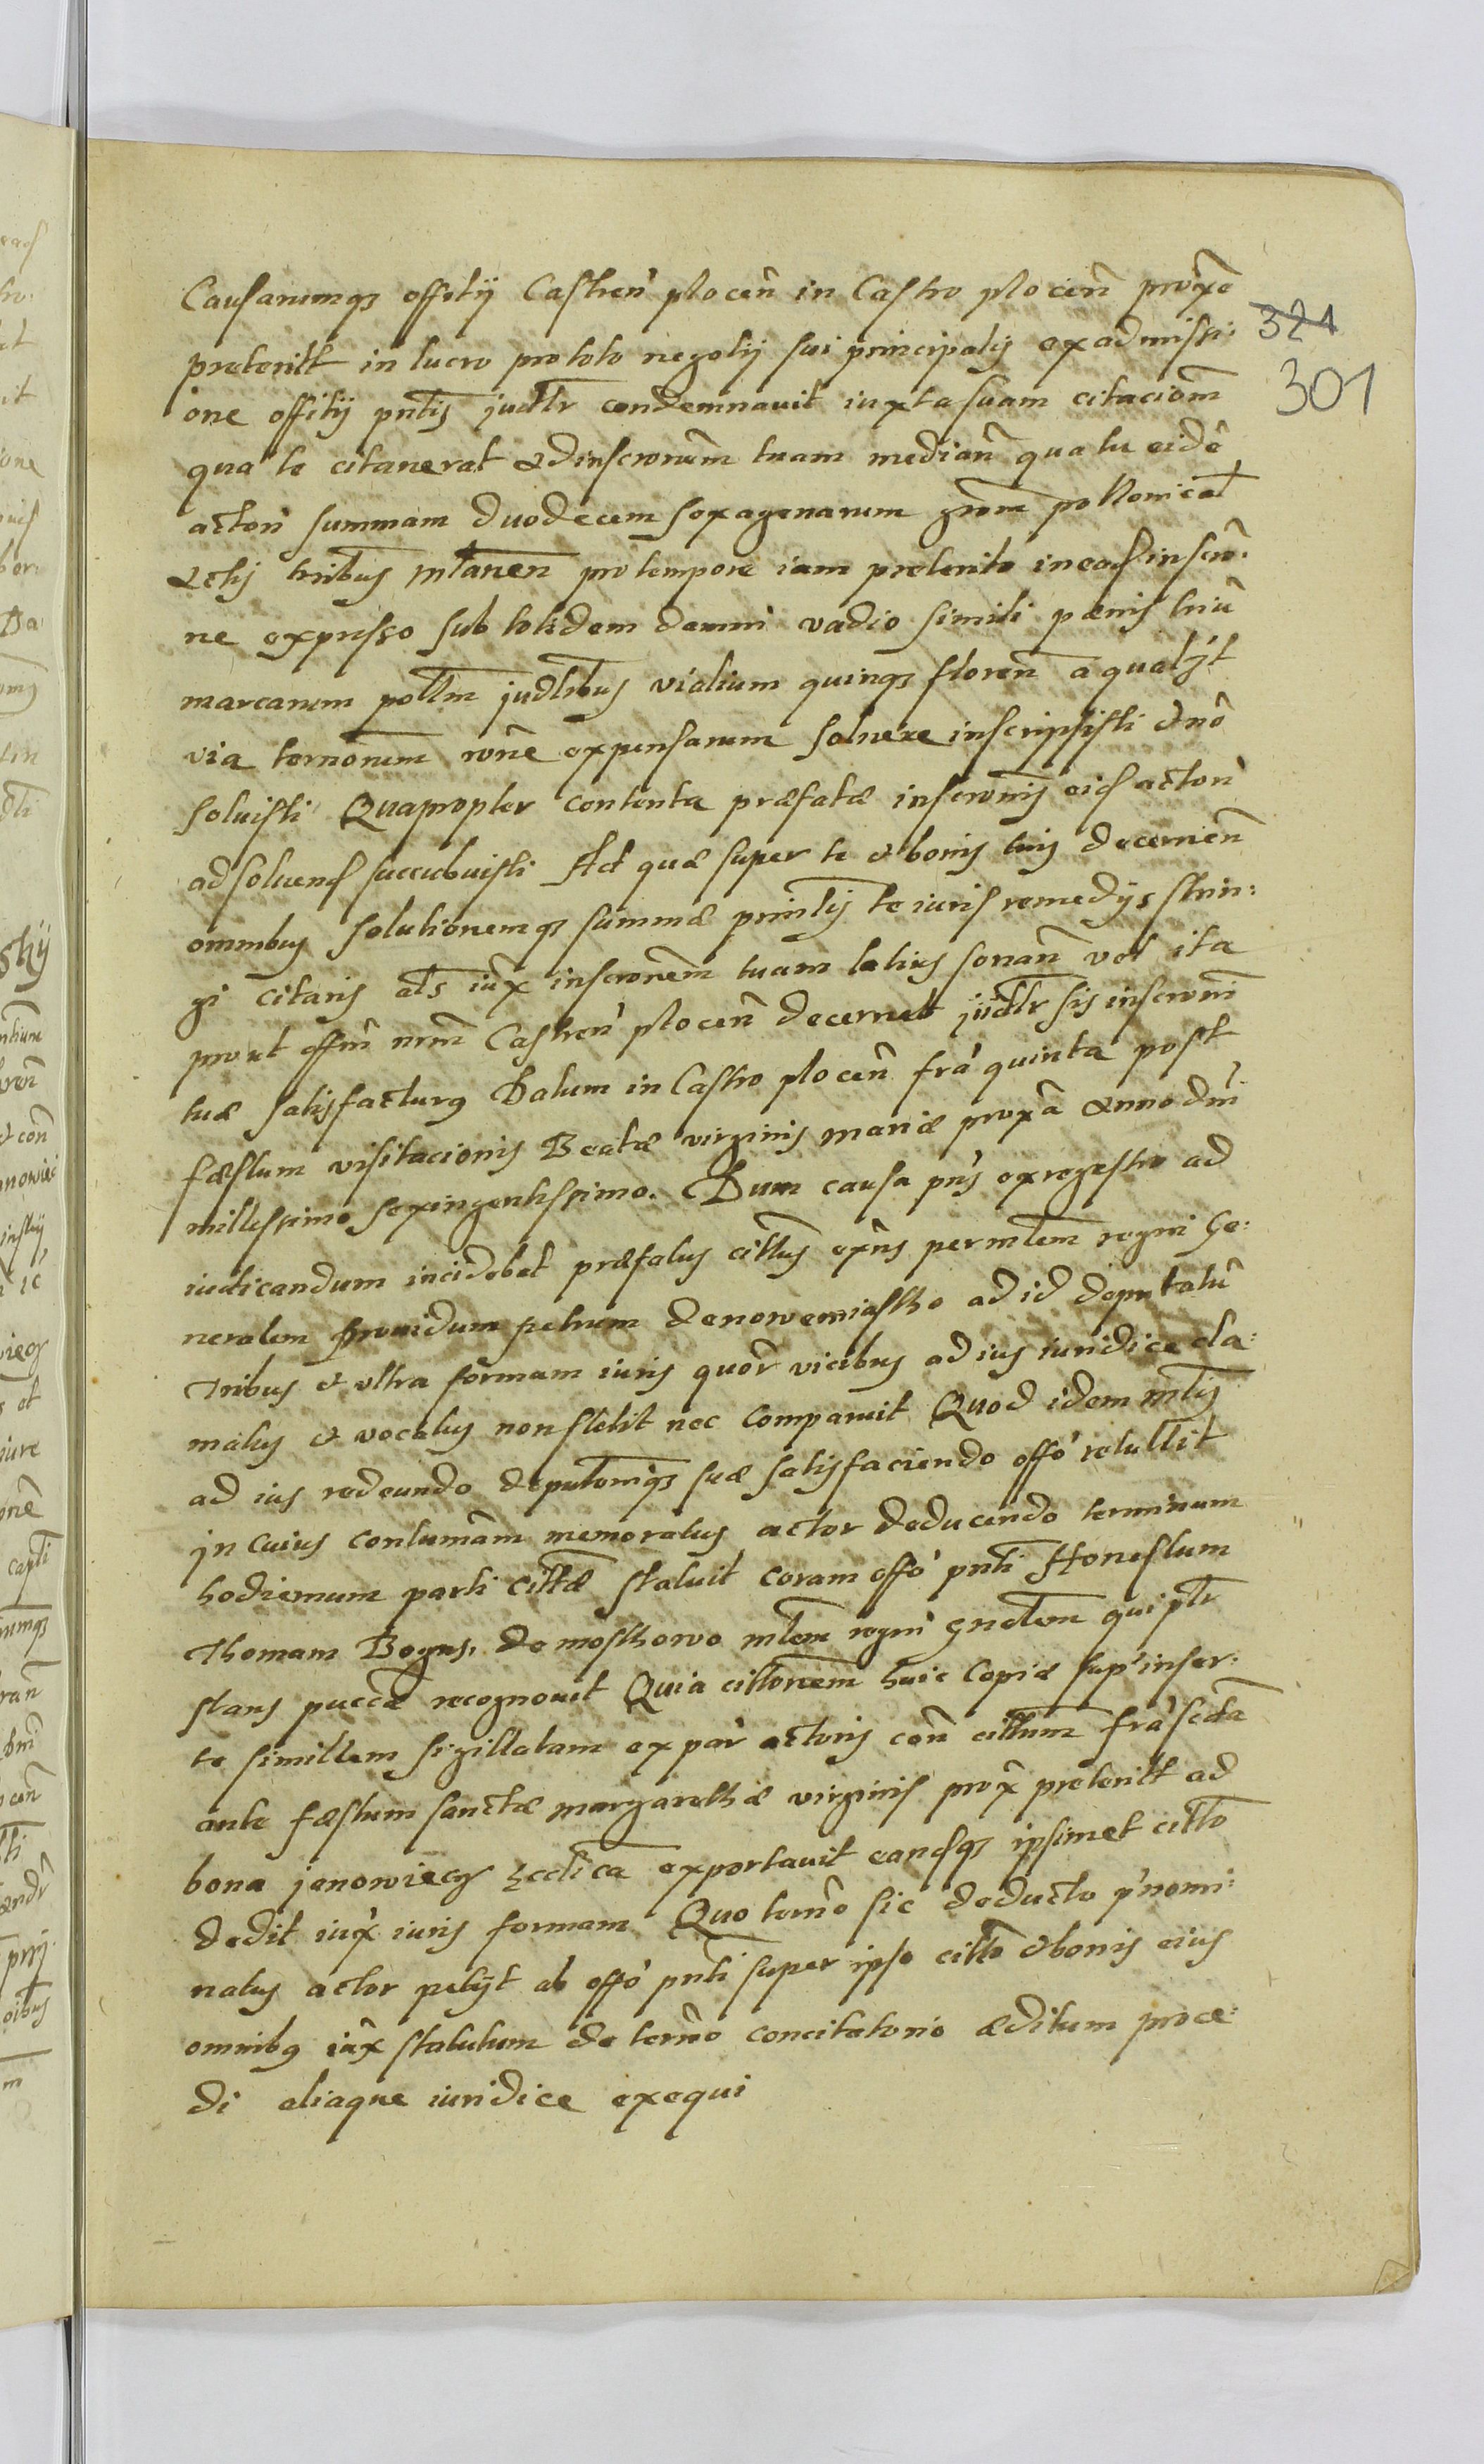 Causarumqȝ offitij Castren̄ plocen̄ in Castro plocen̄ prox̄e
321
preteritt in lucro pro toto negotij sui principalis ex admissi:
301
one offitij pn̄tis judtr condemnauit iuxta suam citaciom̄
qua te citauerat & inscronem̄ tuam median̄ qua tu eidē
actori summam duodecem sexagenarum grom̄ pollonical
& tris tribus mtanen̄ pro tempore iam preterito in ead inscro:
ne expresso sub totidem damni vadio simili pænis triū
marcarum pottm̄ judtibus vialium quinqȝ floren̄ a qualjt
via termōrum rōne expensarum soluere inscripsisti & nō
soluisti Quapropter contenta præfatæ inscronis eid actori
ad soluend succubuisti Ad quæ super te & bonis tuis decernen̄
omnibus solutionemqȝ summæ prin̄tis te iuris remedijs strin:
gi citaris ats iux̄ inscronem̄ tuam latius sonan̄ vel ita
prout offm̄ nrm̄ Castren̄ plocen̄ decernet judtr sis inscroni
tuæ satisfacturus Datum in Castro plocen̄ fra quinta post
fæstum visitacionis Beatæ virginis mariæ prox̄a Anno dnī
millessimo sexingentissimo. Dum causa pn̄s ex regestro ad
iudicandum incidebat præfatus cittus ex̄ns per mtem̄ regni Ge:
neralem prouidum petrum de nowemiastho ad id deputatū
Tribus & vltra formam iuris quor̄ vicibus ad ius iuridice cla:
matus & vocatus non stetit nec comparuit Quod idem mtis
ad ius redeundo deputoniqȝ suæ satisfaciendo offo retullit
jn cuius contumām memoratus actor deducendo terminum
hodiernum parti cittæ statuit coram offo pn̄ti Honestum
Thomam Bogus. de mosthowo mtem̄ regni gnetem qui ptr
stans puccæ recognouit Quia cittonem̄ huic Copiæ sup inser:
te simillem sigillatam ex par actoris con̄ cittum fra scdā
ante fæstum sanctæ margarethæ virginis prox̄ preteritt ad
bona janowiecz Ecclica exportauit eandqȝ ipsimet citto
dedit iux̄ iuris formam Quo termō sic deducto p̄nomi:
natus actor petijt ab offo pn̄ti super ipso citto & bonis eius
omnibȝ iux̄ statutum de termō concitatorio æditum proce:
di aliaque iuridice exequi